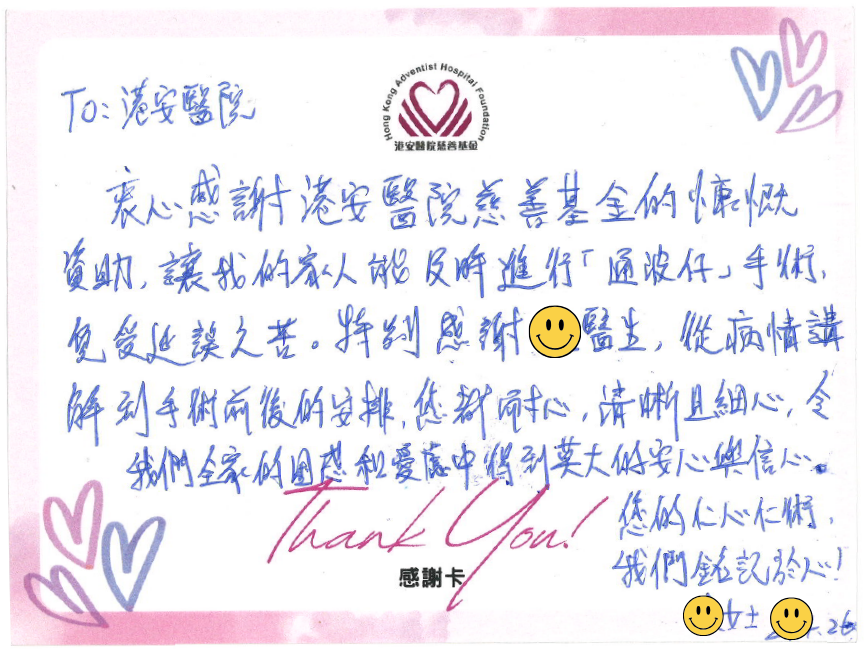 Hong Kong Adventist Hospital Foundation
港安醫院慈善基金
To: 港安醫院
衷心感謝港安醫院慈善基金的慷慨
資助，讓我的家人能及時進行「通波仔」手術，
免受延誤之苦。特別感謝醫生，從病情講
解到手術前後的安排，您都耐心，清晰且細心，令
我們全家的困惑和憂慮中得到莫大的安心與信心。
Thank You!
感謝卡
您的仁心仁術，
我們銘記於心！
女士